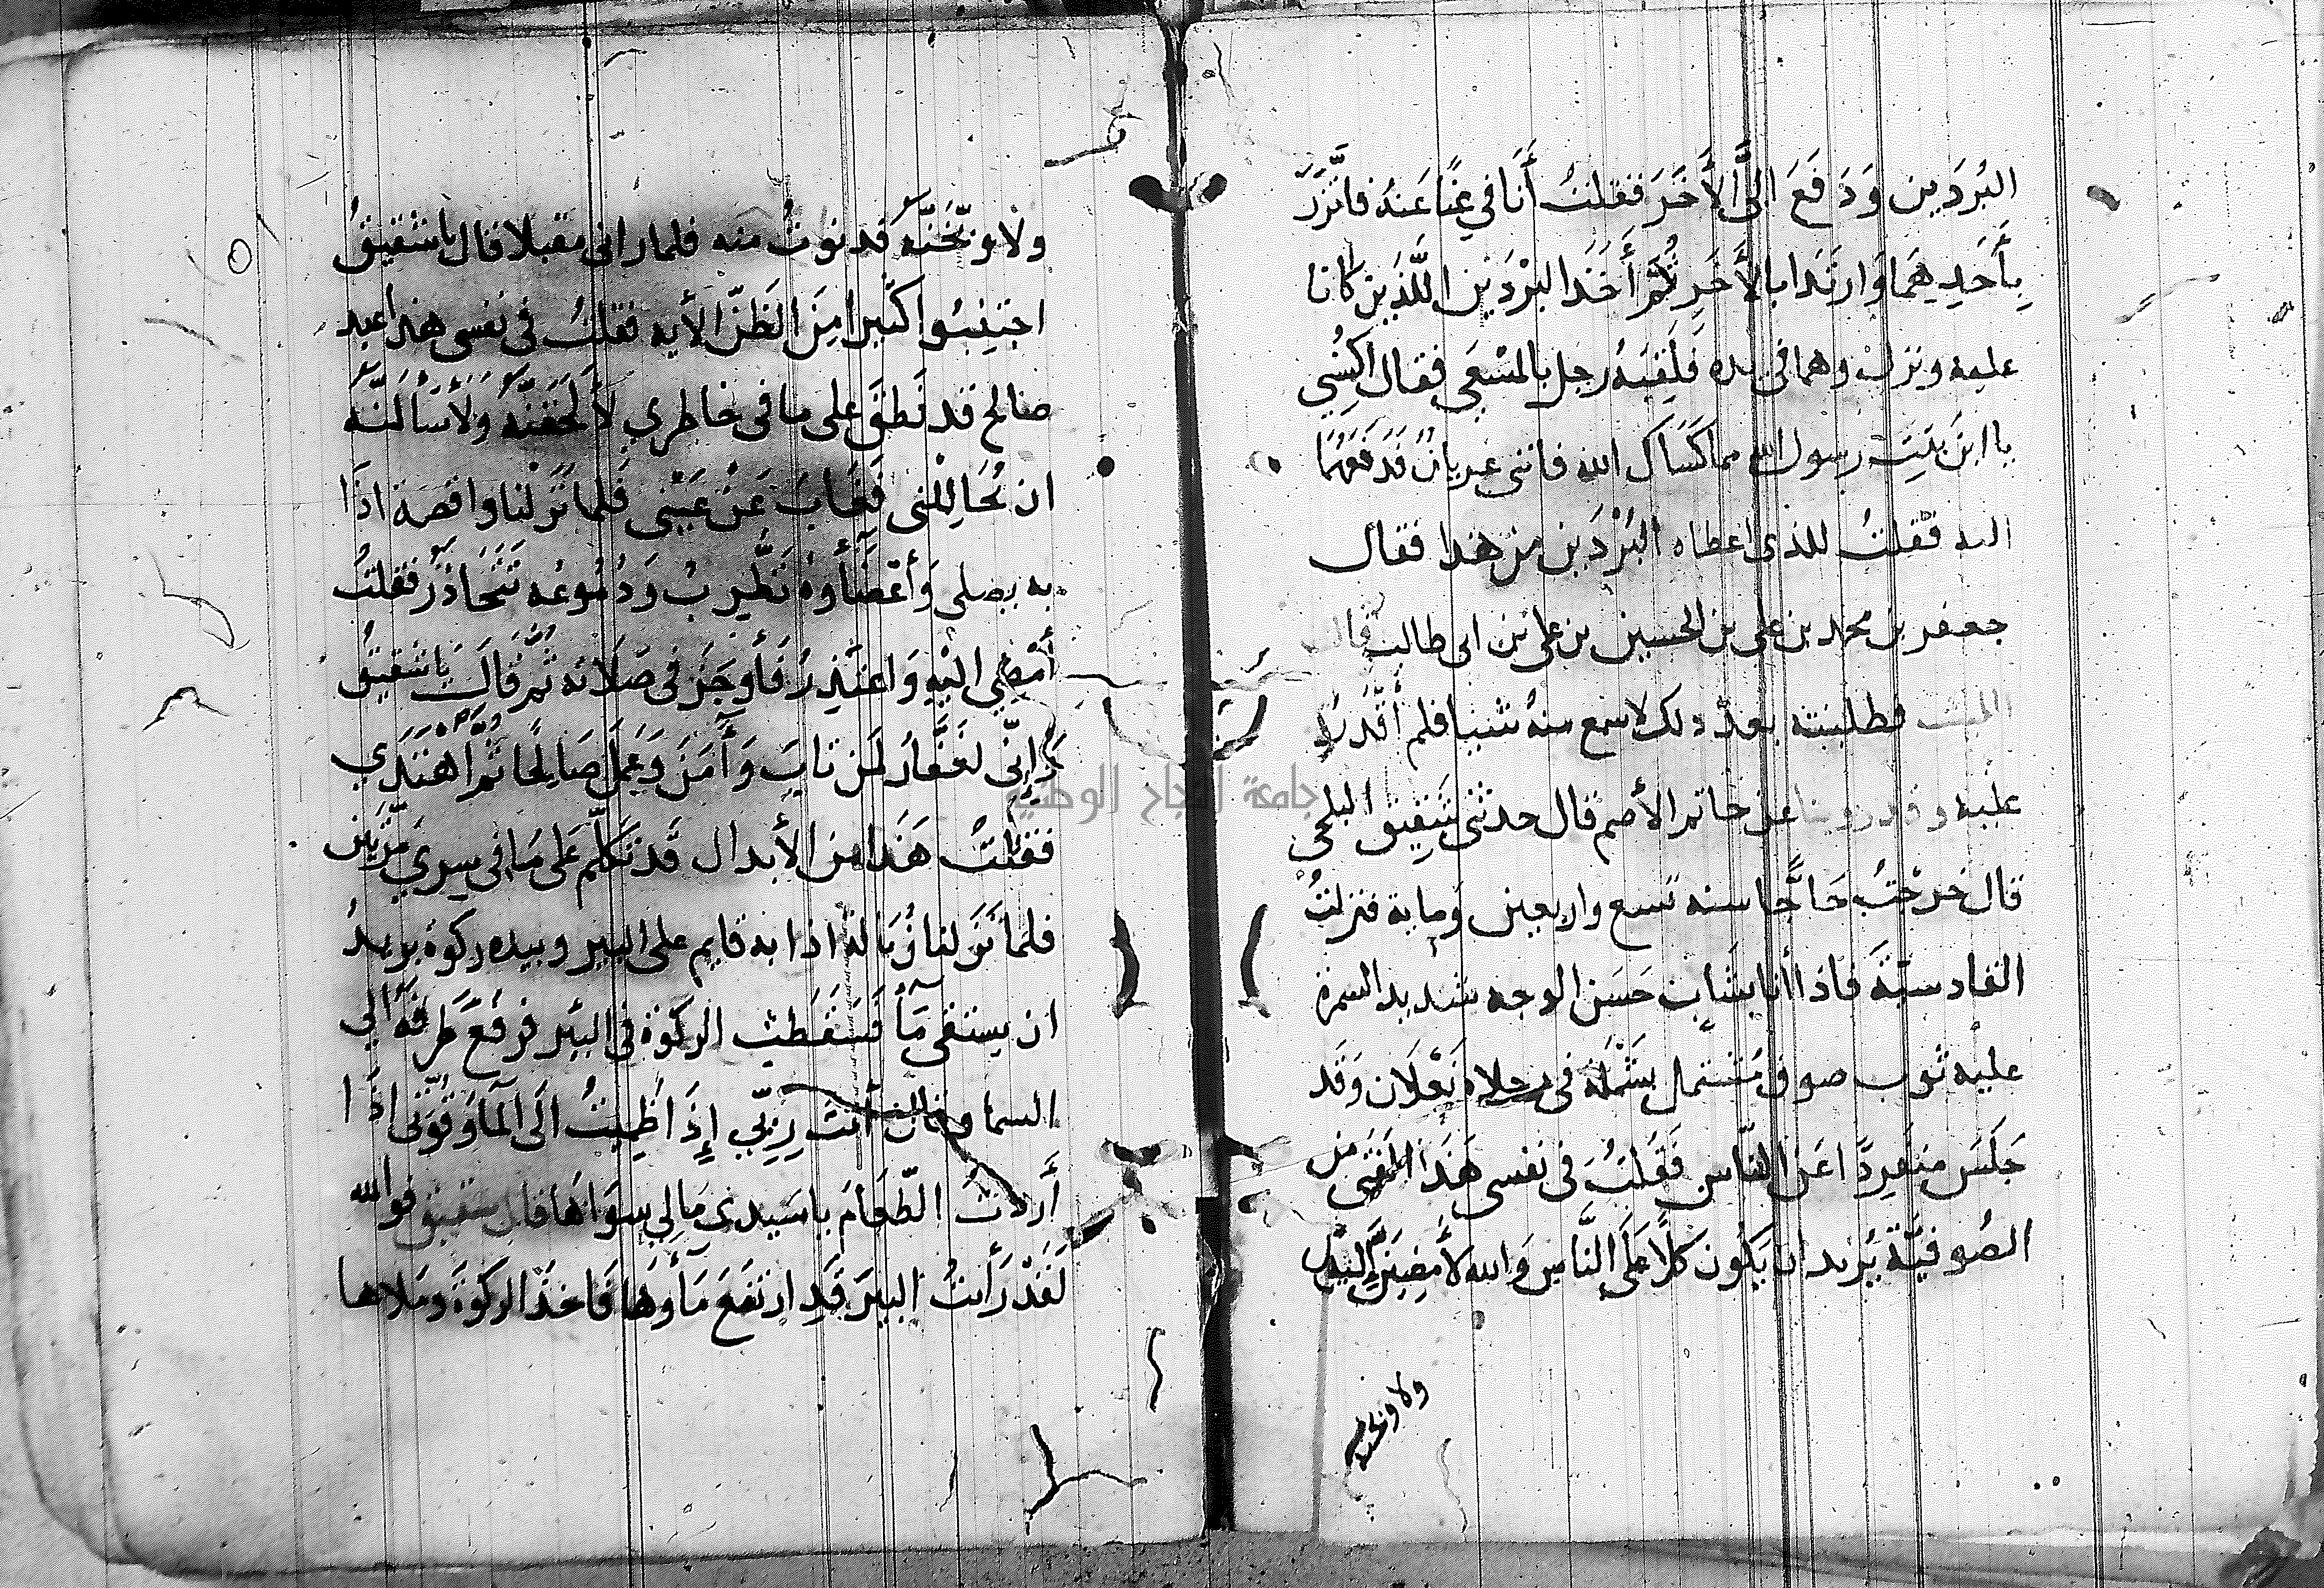 البُرَدَين وَدَفَعَ الىَّ الأَخَرَ فقلتُ أَنَا في غِنًا عَنهُ فاتَّزَرَ
بِأَحَدِيهَما وَارتَدَا بالأَخَرِ ثُمَّ أَخَذَ البُرْدَين اللَّذَين كانا
عليه ونزل وهما فى يده فَلَقِيَهُ رجل بالمَسْعَى فقال اكْسُنِي
يا ابنَ بنتِ رسول الله مما كَسَاكَ الله فاننى عريانٌ فَدَفَعَهُمَا
اليه فقلتُ للذى اعطاه البُرْدَين من هذا فقال
جعفر بن محمد بن على بن الحسين بن على بن ابى طالب قال
الليث فطلبته بعد ذلك لاسمع منهُ شيا فلم أَقْدِرْ
عليه وقد روينا عن حاتم الأصم قال حدثنى شَقِيق البلخى
قال خرجتُ حَاجًّا سنه تسع واربعين وماية فنزلتُ
القادسيَّةَ فاذا أنا بشَابٍ حَسَن الوجه شديد السمرة
عليه ثوب صوف مُشتمل بِشَمْلَة فى رجلاه نَعْلَان وَقَد
جَلَسَ منفردًا عَن النَّاس فَقُلتُ فى نفسى هَذَا الفَتَى من
الصُوفيَّة يُريد ان يَكُون كلًّا عَلَى النَّاس وَالله لأَمضِيَنَّ إِليْه
ولاوبخنه
ولأوبّخَنَّهُ فدنوتُ منه فلما رانى مقبلا قال يا شقيقُ
اجتنِبُوا كثيرا مِنَ الظَنّ الأيه فقلتُ فى نفسى هذا عبد
صالح قد نَطقَ على ما فى خاطري لأَلحَقَنَّهُ وَلَأَسْأَلَنَّهُ
ان يُحَالِلنى فَغَابَ عَنْ عَيْنى فَلما نَزلنا واقصة اذَا
به يصلى وَأَعْضَأَوهُ تَضْطَرِبُ وَدُمُوعُه تَتَحَاذَرُ فقلتُ
أَمْضِي اليْهِ وَاعتَذِرُ فَأَوجَزَ فى صَلَاته ثُمَّ قَالَ يَا شَقيقُ
وَإِنّى لَغَفَّارٌ لمَن تَابَ وَأَمَنَ وَعَمِلَ صَالِحًا ثُمَّ اهْتَدَي
فقلتُ هَذَا من الأبدال قَد تَكلَّم عَلى مَا فى سِرِي مَرَّتَين
فلما نَزَلنا زُبَالة اذا به قايم على البير وبيده ركوة يريدُ
ان يستقى مَأً فَسَقَطتْ الركوَة فى البئر فرفَعَ طَرفَهُ الي
السما وقال أنتَ رِيِّي إِذَا ظَمِيتُ الَى الْمَا وَقُوَّتى اذَا
أَردْتَ الطَّعَامَ يا سَيدى مَالِي سِوَاهَا قال شقيق فوالله
لَقَدْ رَأَيتُ البيرَ قَد ارتَفعَ مَأوَهَا فَاخذ الركوَةَ ومَلاهَا
جامعة النجاح الوطنية